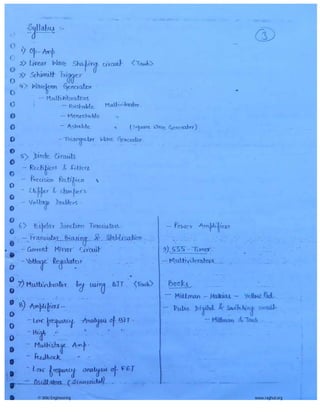 Syllabus :-
3
1) Op-Amp
2) Linear Wave Shaping circuit <Taub>
3) Schmitt Trigger
4) Waveform Generator
- Multivibrators
- Bistable Multivibrator
- Monostable "
- Astable " (Square Wave Generator)
- Triangular Wave Generator
5) Diode Circuits
- Rectifiers & filters
- Precision Rectifier
- Clipper & clampers
- Voltage Doublers
6) Bipolar Junction Transistor
- Transistor Biasing & Stabilization
- Current Mirror Circuit
- Voltage Regulator
7) Multivibrator by using BJT <Taub>
8) Amplifiers -
- Low frequency Analysis of BJT
- High " "
- Multistage Amp.
- Feedback "
- Low frequency analysis of FET
- Oscillators (Sinusoidal)
- Power Amplifiers
9) 555 - Timer
- Multivibrators
Books
- Millman - Halkias - Yellow Pad
- Pulse Digital & Switching circuit
- Millman & Taub
© Wiki Engineering
www.raghul.org